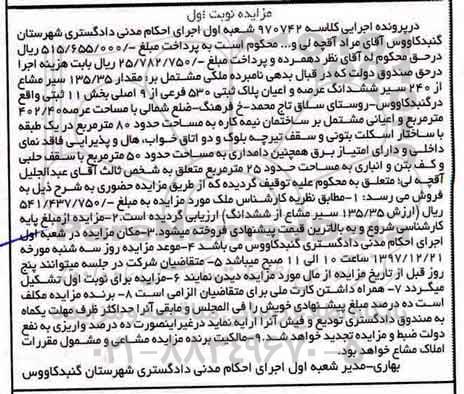 مزایده نوبت اول
درپرونده اجرایی کلاسه ۹۷۰۷۴۲ شعبه اول اجرای احکام مدنی دادگستری شهرستان
گنبدکاووس آقای مراد آقچه لی و... محکوم است به پرداخت مبلغ -/۵۱۵/۶۵۵/۰۰۰ ریال
درحق محکوم له آقای نظر دهمرده و پرداخت مبلغ -/۲۵/۷۸۲/۷۵۰ ریال بابت هزینه اجرا
درحق صندوق دولت که در قبال بدهی نامبرده ملکی مشتمل بر: مقدار ۱۳۵/۳۵ سیر مشاع
از ۲۴۰ سیر ششدانگ عرصه و اعیان پلاک ثبتی ۵۳۰ فرعی از ۹ اصلی بخش ۱۱ ثبتی واقع
درگنبدکاووس-روستای سلاق تاج محمد-خ فرهنگ-ضلع شمالی با مساحت عرصه ۴۰۲/۴۰
مترمربع و اعیانی مشتمل بر ساختمان نیمه کاره به مساحت حدود ۸۰ مترمربع در یک طبقه
با ساختار اسکلت بتونی و سقف تیرچه بلوک و دو اتاق خواب، هال و پذیرایی فاقد نمای
داخلی و دارای امتیاز برق همچنین دامداری به مساحت حدود ۵۰ مترمربع با سقف حلبی
و کف بتن و انباری به مساحت حدود ۲۵ مترمربع متعلق به شخص ثالث آقای عبدالجلیل
آقچه لی؛ متعلق به محکوم علیه توقیف گردیده که از طریق مزایده حضوری به شرح ذیل به
فروش می رسد: ۱-مطابق نظریه کارشناس ملک مورد مزایده به مبلغ -/۵۴۱/۴۳۷/۷۵۰
ریال (ارزش ۱۳۵/۳۵ سیر مشاع از ششدانگ) ارزیابی گردیده است.۲-مزایده ازمبلغ پایه
کارشناسی شروع و به بالاترین قیمت پیشنهادی فروخته میشود.۳-مکان مزایده در شعبه اول
اجرای احکام مدنی دادگستری گنبدکاووس می باشد ۴-موعد مزایده روز سه شنبه مورخه
۱۳۹۷/۱۲/۲۱ ساعت ۱۰ الی ۱۱ صبح میباشد ۵- متقاضیان شرکت در جلسه میتوانند پنج
روز قبل از تاریخ مزایده از مال مورد مزایده دیدن نمایند ۶-مزایده برای نوبت اول تشکیل
میگردد ۷- همراه داشتن کارت ملی برای متقاضیان الزامی است ۸- برنده مزایده مکلف
است ده درصد مبلغ پیشنهادی خویش را فی المجلس و مابقی آنرا حداکثر ظرف مهلت یکماه
به صندوق دادگستری تودیع و فیش آنرا ارایه نماید درغیراینصورت ده درصد واریزی به نفع
دولت ضبط و مزایده تجدید خواهد شد.۹-مالکیت برنده مزایده مشاعی و مشمول مقررات
املاک مشاع خواهد بود.
بهاری-مدیر شعبه اول اجرای احکام مدنی دادگستری شهرستان گنبدکاووس
۰۲۱-۸۸۳۴۹۶۷۰-۵